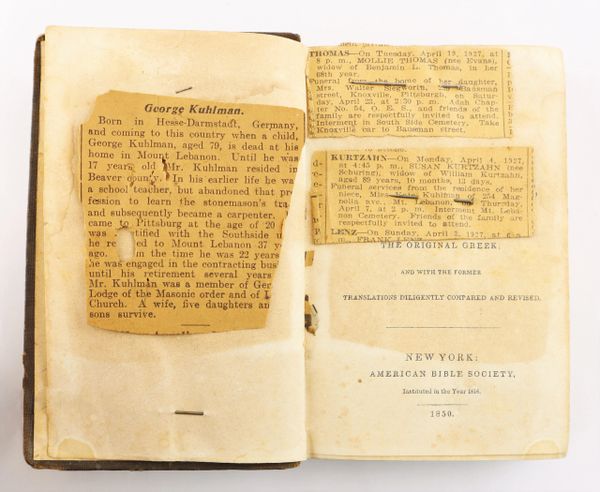 George Kuhlman.
Born in Hesse-Darmstadt, Germany,
and coming to this country when a child,
George Kuhlman, aged 79, is dead at his
home in Mount Lebanon. Until he was
17 years old Mr. Kuhlman resided in
Beaver county. In his earlier life he was
a school teacher, but abandoned that pro-
fession to learn the stonemason's tra
and subsequently became a carpenter.
came to Pittsburg at the age of 20
was identified with the Southside u
he removed to Mount Lebanon 37 y
ago. In the time he was 22 years
he was engaged in the contracting busi
until his retirement several years
Mr. Kuhlman was a member of Ger
Lodge of the Masonic order and of
Church. A wife, five daughters an
sons survive.
THOMAS—On Tuesday, April 19, 1927, at
8 p. m., MOLLIE THOMAS (nee Evans),
widow of Benjamin L. Thomas, in her
68th year.
Funeral from the home of her daughter,
Mrs. Walter Siegworth, Bausman
street, Knoxville, Pittsburgh, on Satur-
day, April 23, at 2:30 p. m. Adah Chap-
ter No. 54, O. E. S., and friends of the
family are respectfully invited to attend.
Interment in South Side Cemetery. Take
Knoxville car to Bausman street.
KURTZAHN—On Monday, April 4, 1927,
at 4:45 p. m., SUSAN KURTZAHN (nee
Schuring), widow of William Kurtzahn,
aged 89 years, 10 months, 13 days.
Funeral services from the residence of her
niece, Miss Kuhlman of 254 Mag-
nolia ave., Mt. Lebanon, Thursday,
April 7, at 2 p. m. Interment Mt. Leba-
non Cemetery. Friends of the family are
respectfully invited to attend.
LENZ—On Sunday, April 3, 1927, at
m., FRANK LENZ
THE ORIGINAL GREEK;
AND WITH THE FORMER
TRANSLATIONS DILIGENTLY COMPARED AND REVISED.
NEW YORK:
AMERICAN BIBLE SOCIETY,
Instituted in the Year 1816.
1850.